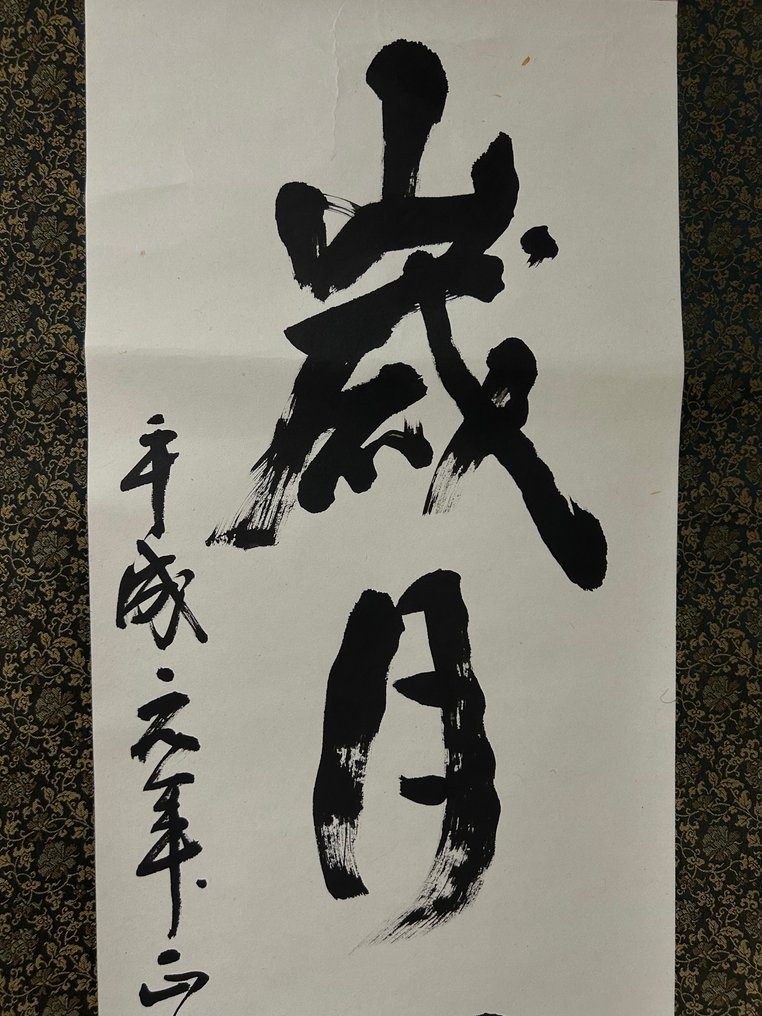 歳月
平成元年正